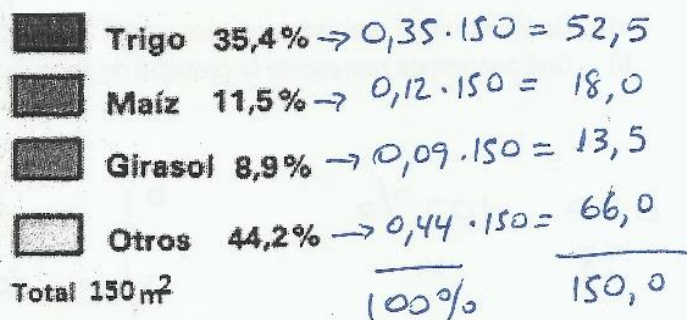 Trigo 35,4% → 0,35 · 150 = 52,5
Maíz 11,5% → 0,12 · 150 = 18,0
Girasol 8,9% → 0,09 · 150 = 13,5
Otros 44,2% → 0,44 · 150 = 66,0
Total 150 m² 100% 150,0